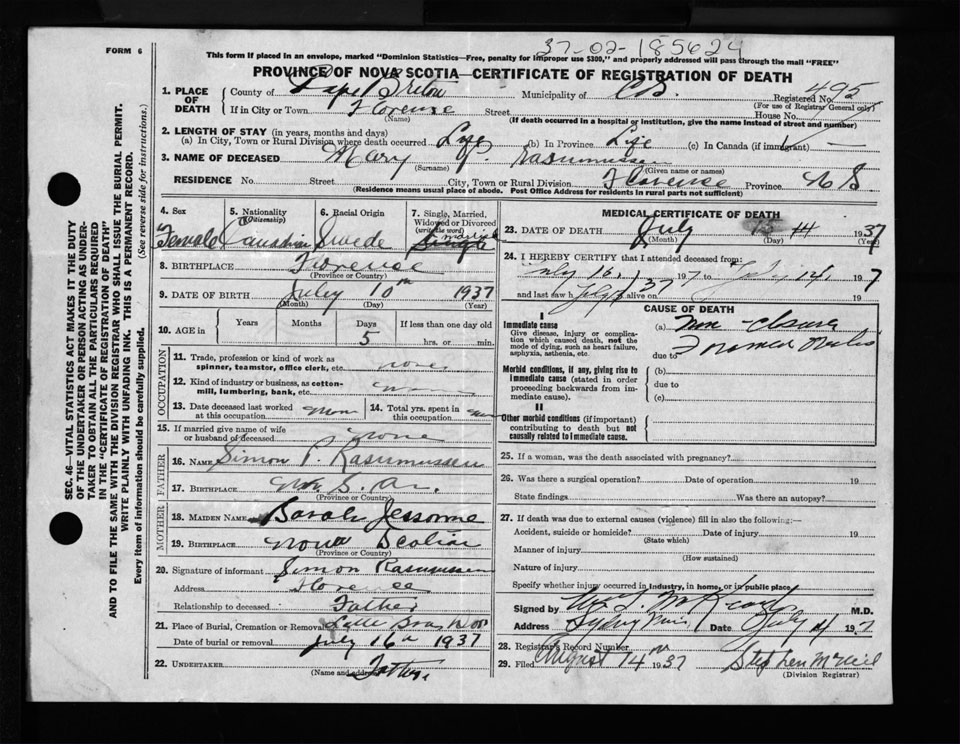 37-02-185624
FORM 6
This form if placed in an envelope, marked "Dominion Statistics—Free, penalty for improper use $300," and properly addressed will pass through the mail "FREE"
PROVINCE OF NOVA SCOTIA—CERTIFICATE OF REGISTRATION OF DEATH
1. PLACE OF DEATH
County of Cape Breton Municipality of C.B. Registered No. 495
(For use of Registrar General only)
If in City or Town Florence Street House No.
(Name) (If death occurred in a hospital or institution, give the name instead of street and number)
2. LENGTH OF STAY (in years, months and days)
(a) In City, Town or Rural Division where death occurred Life (b) In Province Life (c) In Canada (if immigrant) —
3. NAME OF DECEASED Mary Rasmussen
(Surname) (Given name or names)
RESIDENCE No. Street City, Town or Rural Division Florence Province N.S.
(Residence means usual place of abode. Post Office Address for residents in rural parts not sufficient)
4. Sex Female
5. Nationality (Citizenship) Canadian
6. Racial Origin Swede
7. Single, Married, Widowed or Divorced (write the word) Single
8. BIRTHPLACE Florence
(Province or Country)
9. DATE OF BIRTH July 10th 1937
(Month) (Day) (Year)
10. AGE in Years Months Days 5 If less than one day old hrs. or min.
OCCUPATION
11. Trade, profession or kind of work as spinner, teamster, office clerk, etc. none
12. Kind of industry or business, as cotton-mill, lumbering, bank, etc.
13. Date deceased last worked at this occupation
14. Total yrs. spent in this occupation
15. If married give name of wife or husband of deceased none
FATHER
16. NAME Simon P. Rasmussen
17. BIRTHPLACE
(Province or Country)
MOTHER
18. MAIDEN NAME Sarah Jessome
19. BIRTHPLACE Nova Scotia
(Province or Country)
20. Signature of informant Simon Rasmussen
Address Florence
Relationship to deceased Father
21. Place of Burial, Cremation or Removal Little Bras Dor
Date of burial or removal July 16th 1937
22. UNDERTAKER
(Name and address)
MEDICAL CERTIFICATE OF DEATH
23. DATE OF DEATH July 14 1937
(Month) (Day) (Year)
24. I HEREBY CERTIFY that I attended deceased from:
July 1937 to July 14, 1937
and last saw h alive on 19
CAUSE OF DEATH
I
Immediate cause
Give disease, injury or complication which caused death, not the mode of dying, such as heart failure, asphyxia, asthenia, etc.
(a) Non-closure Foramen Ovalis
due to
Morbid conditions, if any, giving rise to immediate cause (stated in order proceeding backwards from immediate cause).
(b)
due to
(c)
II
Other morbid conditions (if important) contributing to death but not causally related to immediate cause.
25. If a woman, was the death associated with pregnancy?
26. Was there a surgical operation? Date of operation 19
State findings Was there an autopsy?
27. If death was due to external causes (violence) fill in also the following:—
Accident, suicide or homicide? Date of injury 19
(State which)
Manner of injury
(How sustained)
Nature of injury
Specify whether injury occurred in industry, in home, or in public place
Signed by M.D.
Address Sydney Mines Date July 14 1937
28. Registrar's Record Number
29. Filed August 14 1937 Stephen McNeil
(Division Registrar)
SEC. 46—VITAL STATISTICS ACT MAKES IT THE DUTY
OF THE UNDERTAKER OR PERSON ACTING AS UNDER-
TAKER TO OBTAIN ALL THE PARTICULARS REQUIRED
IN THE "CERTIFICATE OF REGISTRATION OF DEATH"
AND TO FILE THE SAME WITH THE DIVISION REGISTRAR WHO SHALL ISSUE THE BURIAL PERMIT.
WRITE PLAINLY WITH UNFADING INK. THIS IS A PERMANENT RECORD.
Every item of information should be carefully supplied. (See reverse side for instructions.)